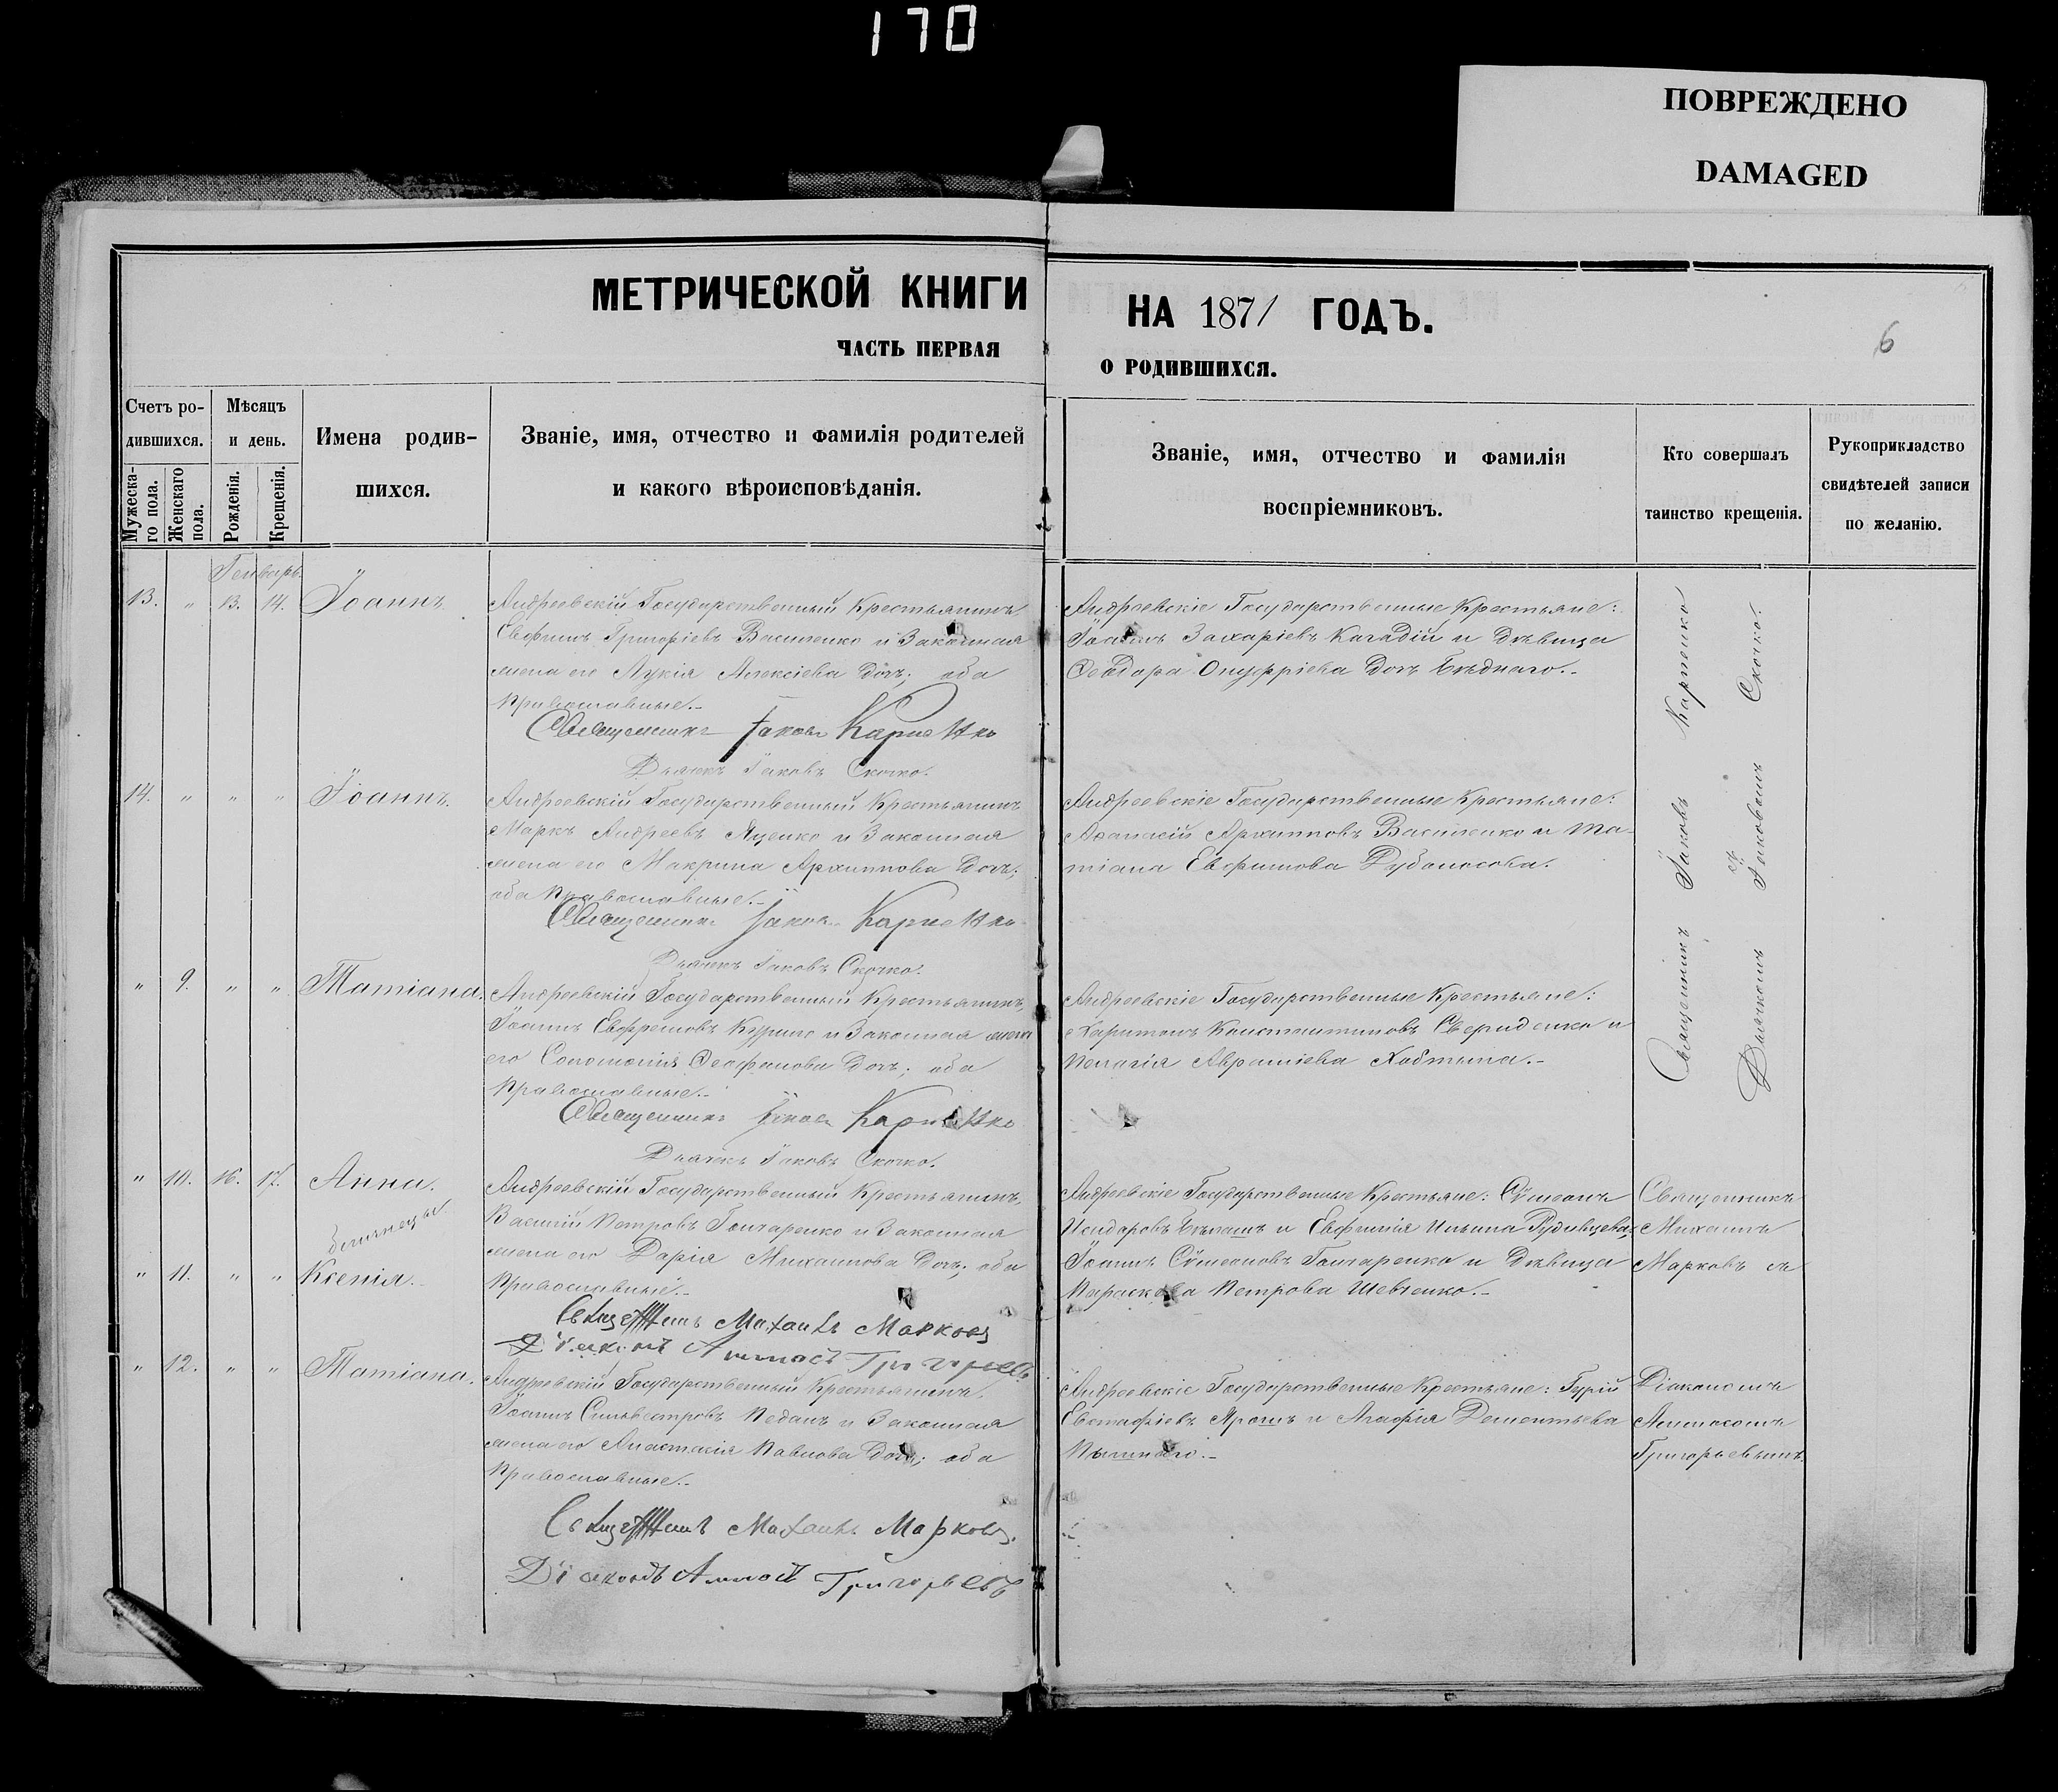 170
ПОВРЕЖДЕНО
DAMAGED
МЕТРИЧЕСКОЙ КНИГИ НА 1871 ГОДЪ.
ЧАСТЬ ПЕРВАЯ О РОДИВШИХСЯ.
6
Счетъ ро-
дившихся.
Мужеска-
го пола.
Женскаго
пола.
Мѣсяцъ
и день.
Рожденія.
Крещенія.
Имена родив-
шихся.
Званіе, имя, отчество и фамилія родителей
и какого вѣроисповѣданія.
Званіе, имя, отчество и фамилія
воспріемниковъ.
Кто совершалъ
таинство крещенія.
Рукоприкладство
свидѣтелей записи
по желанію.
Генварь.
13. " 13. 14. Іоаннъ.
Андреевскій Государственный Крестьянинъ
Евфимъ Григоріевъ Василенко и Законная
жена его Лукія Алексіева дочь; оба
Православные.-
Священникъ Іаковъ Карпенко
Дьячекъ Іаковъ Скочко.
Андреевскіе Государственные Крестьяне:
Іоаннъ Захаріевъ Кагадій и Дѣвица
Ѳеодора Онуфріева дочь Бѣднаго.-
14. " " " Іоаннъ.
Андреевскій Государственный Крестьянинъ
Маркъ Андреевъ Яценко и Законная
жена его Макрина Архиппова дочь;
оба Православные.-
Священникъ Іаковъ Карпенко
Дьячекъ Іаковъ Скочко.
Андреевскіе Государственные Крестьяне:
Аѳанасій Архипповъ Василенко и Та-
тіана Евфимова Дубоносова.
" 9. " " Татіана.
Андреевскій Государственный Крестьянинъ
Іоаннъ Ефремовъ и Законная жена
его Соломонія Ѳеофанова дочь; оба
Православные.-
Священникъ Іаковъ Карпенко
Дьячекъ Іаковъ Скочко.
Андреевскіе Государственные Крестьяне:
Харитонъ Константиновъ Свериденко и
Пелагія Авраміева.-
Священникъ Іаковъ Карпенко
съ
Дьячкомъ Іаковомъ Скочко.
" 10. 16. 17. Анна.
близнецы
" 11. " " Ксенія.
Андреевскій Государственный Крестьянинъ
Василій Петровъ Гончаренко и Законная
жена его Дарія Михаилова дочь; оба
Православные.-
Священникъ Михаилъ Марковъ
Діаконъ Аммосъ Григорьевъ
Андреевскіе Государственные Крестьяне: Сѵмеонъ
Исидоровъ и Евфимія Ильина Рудивцева;
Іоаннъ Сѵмеоновъ Гончаренко и Дѣвица
Параскева Петрова Шевченко.-
Священникъ
Михаилъ
Марковъ съ
" 12. " " Татіана.
Андреевскій Государственный Крестьянинъ
Іоаннъ Сильвестровъ Педанъ и Законная
жена его Анастасія Павлова дочь; оба
Православные.-
Священникъ Михаилъ Марковъ.
Діаконъ Аммосъ Григорьевъ
Андреевскіе Государственные Крестьяне: Гурій
Евстафіевъ Ярошъ и Агафія Дементьева
Діакономъ
Аммосомъ
Григорьевымъ.